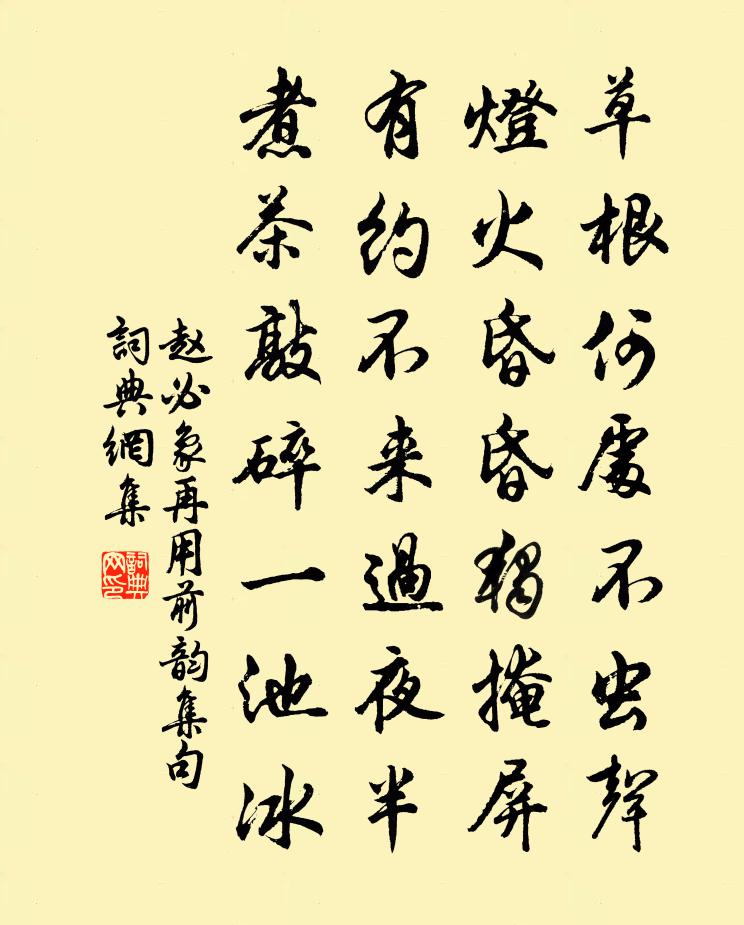 草根何處不虫聲
燈火昏昏獨掩屏
有約不来過夜半
煮茶敲碎一池冰
赵必象再用前韵集句
詞典網集
詞典网印